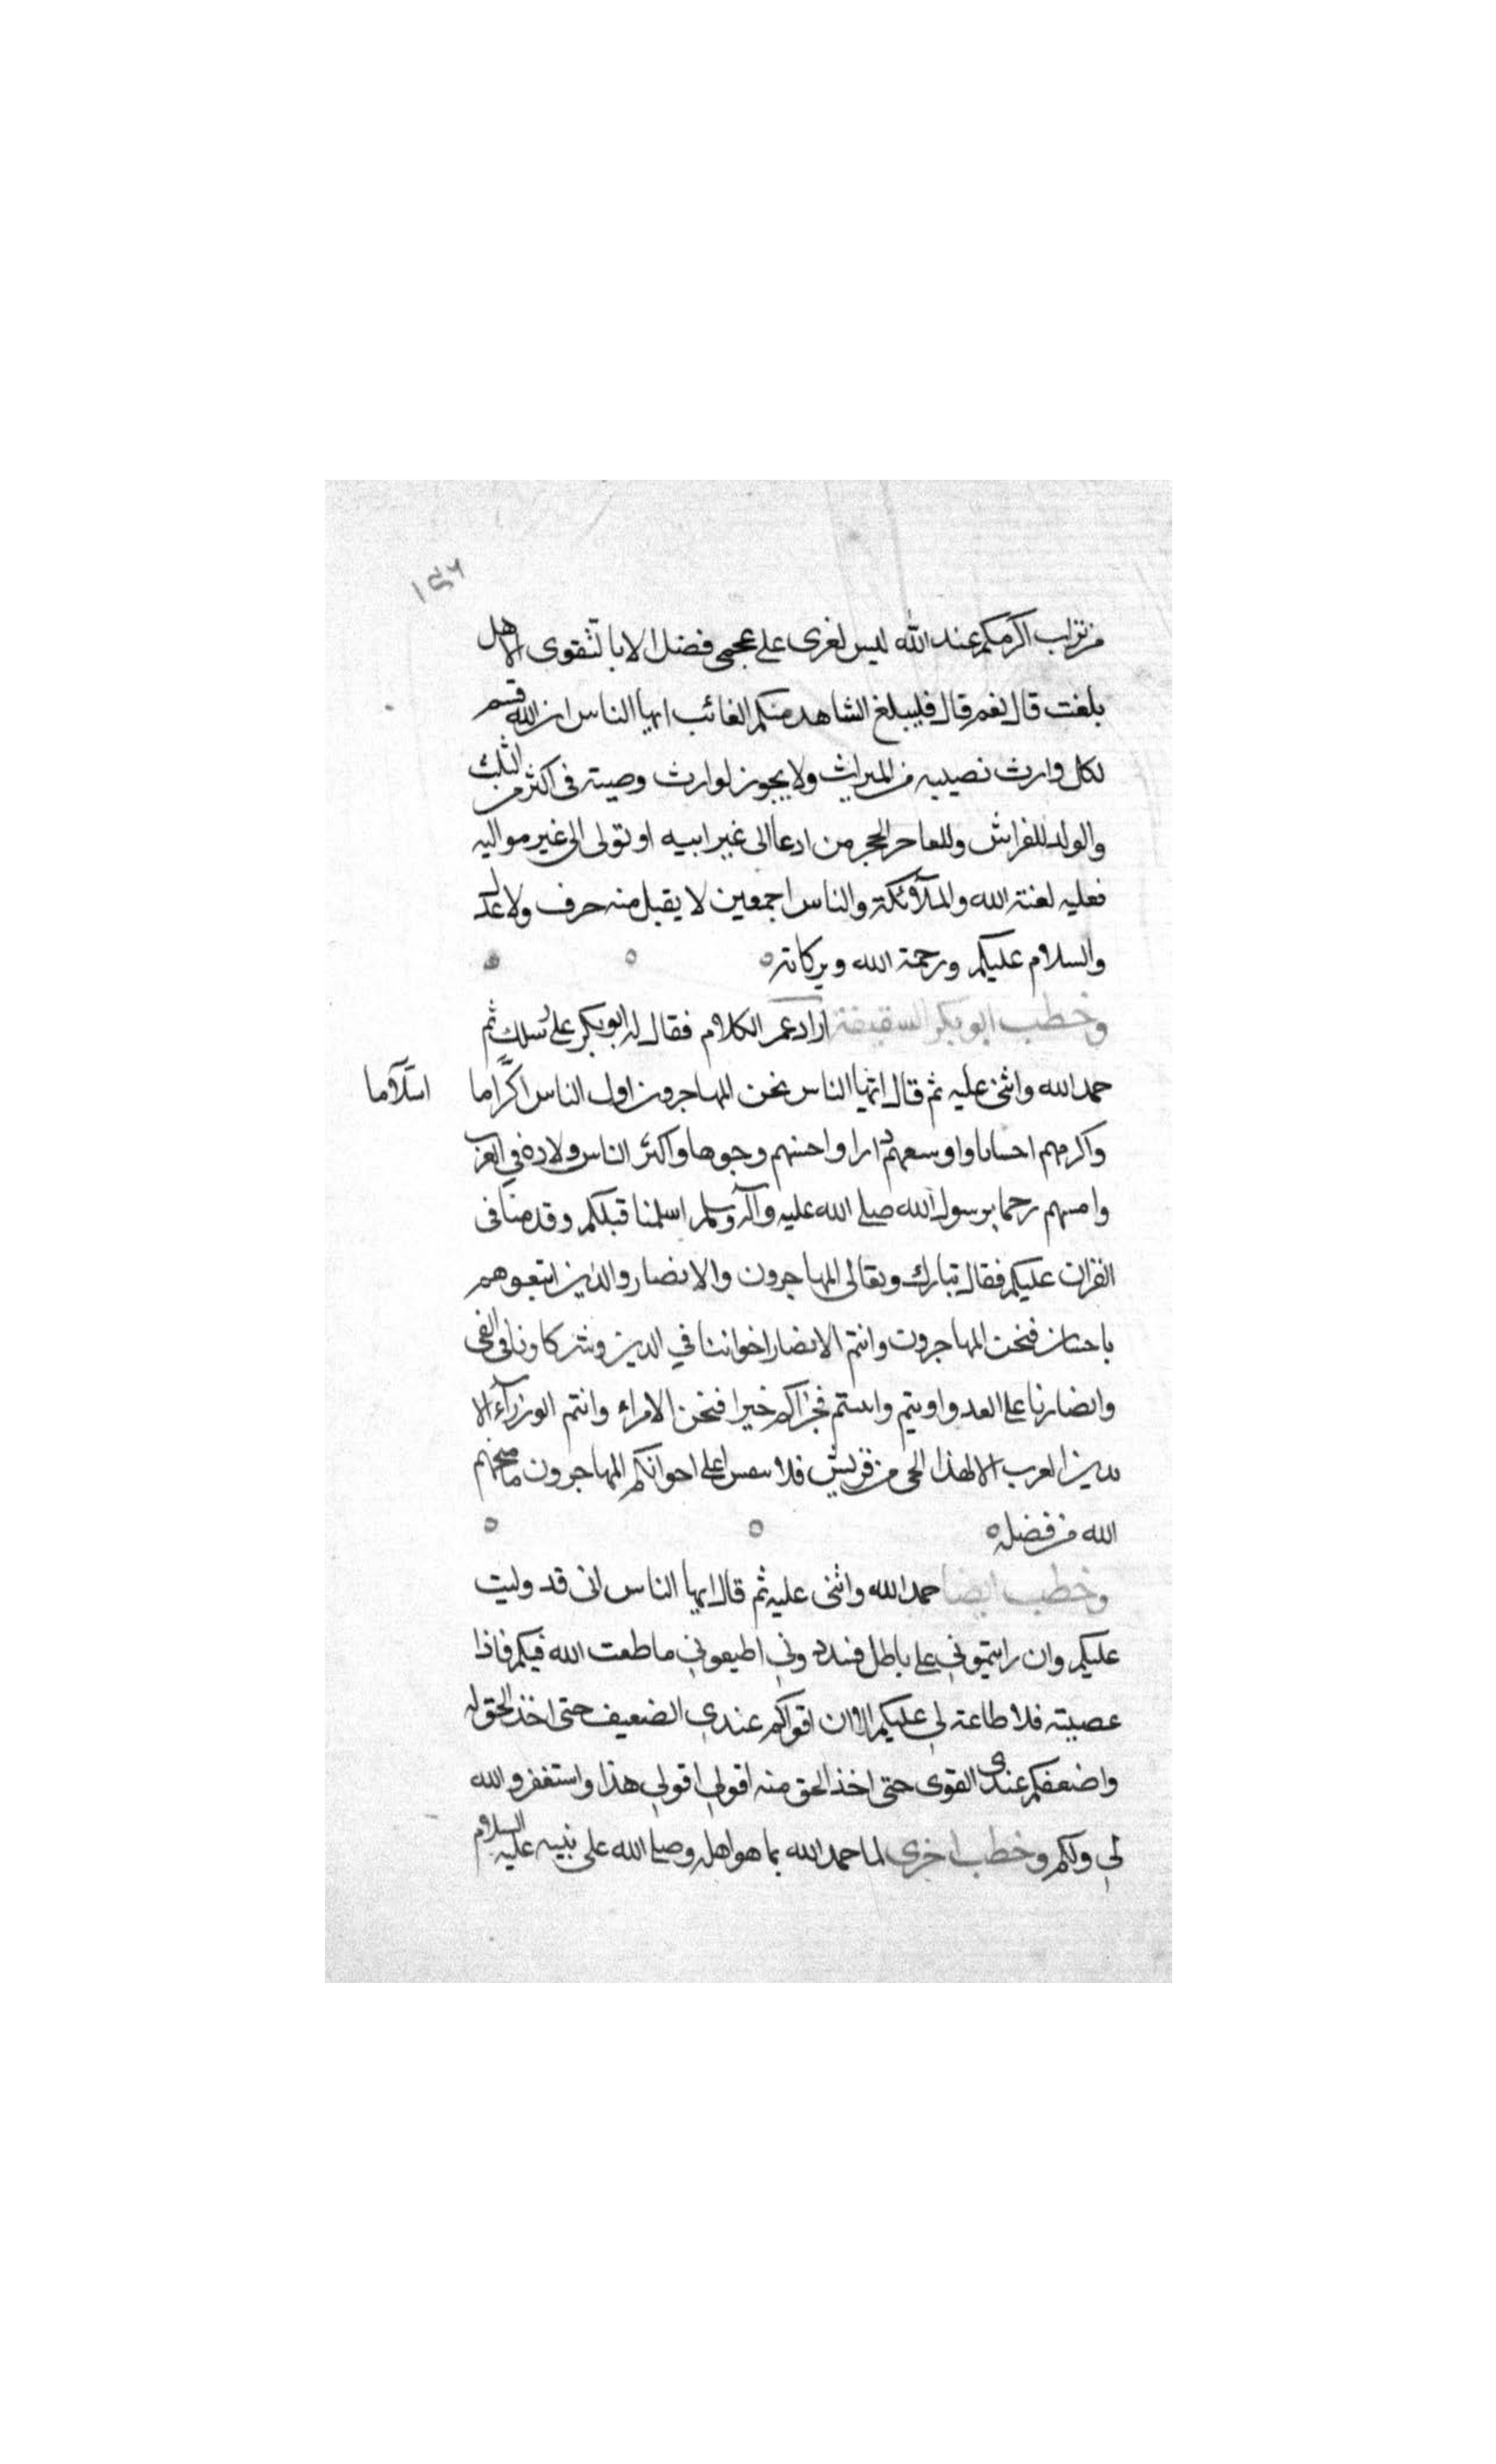 ١٤٦
من تراب اكرمكم عند الله ليس لعربى على عجمى فضل الا بالتقوى الا هل
بلغت قال نعم قال فليبلغ الشاهد منكم الغائب ايها الناس ان الله قسم
لكل وارث نصيبه من الميراث ولا يجوز لوارث وصيته فى اكثر من الثلث
والولد للفراش وللعاهر الحجر من ادعا الى غير ابيه او تولى الى غير مواليه
فعليه لعنة الله والملآئكة والناس اجمعين لا يقبل منه حرف ولا عدل
والسلام عليكم ورحمة الله وبركاته
وخطب ابو بكر السقيفة اراد عمر الكلام فقال له ابو بكر على رسلك ثم
حمد الله واثنى عليه ثم قال ايها الناس نحن المهاجرون اول الناس اكراما
اسلاما
واكرمهم احسابا واوسعهم دارا واحسنهم وجوها واكثر الناس ولادة في العرب
وامسهم رحما برسول الله صلى الله عليه وآله وسلم اسلمنا قبلكم وقدمنا فى
القران عليكم فقال تبارك وتعالى المهاجرون والانصار والذين اتبعوهم
باحسان فنحن المهاجرون وانتم الانصار اخواننا في الدين وشركاونا فى الفى
وانصارنا على العدو اويتم واسيتم فجزاكم خيرا فنحن الامراء وانتم الوزرآء لا
تدين العرب الا لهذا الحى من قريش فلا على اخوانكم المهاجرون ما منحهم
الله من فضله
وخطب ايضا حمد الله واثنى عليه ثم قال ايها الناس انى قد وليت
عليكم وان رايتموني على باطل فسددوني اطيعوني ما طعت الله فيكم فاذا
عصيته فلا طاعة لي عليكم الا ان اقواكم عندي الضعيف حتى اخذ الحق له
واضعفكم عندى القوى حتى اخذ الحق منه اقولي اقولي هذا واستغفرو الله
لي ولكم وخطب اخرى لما حمد الله بما هو اهله وصلى الله على نبيه عليه السلام